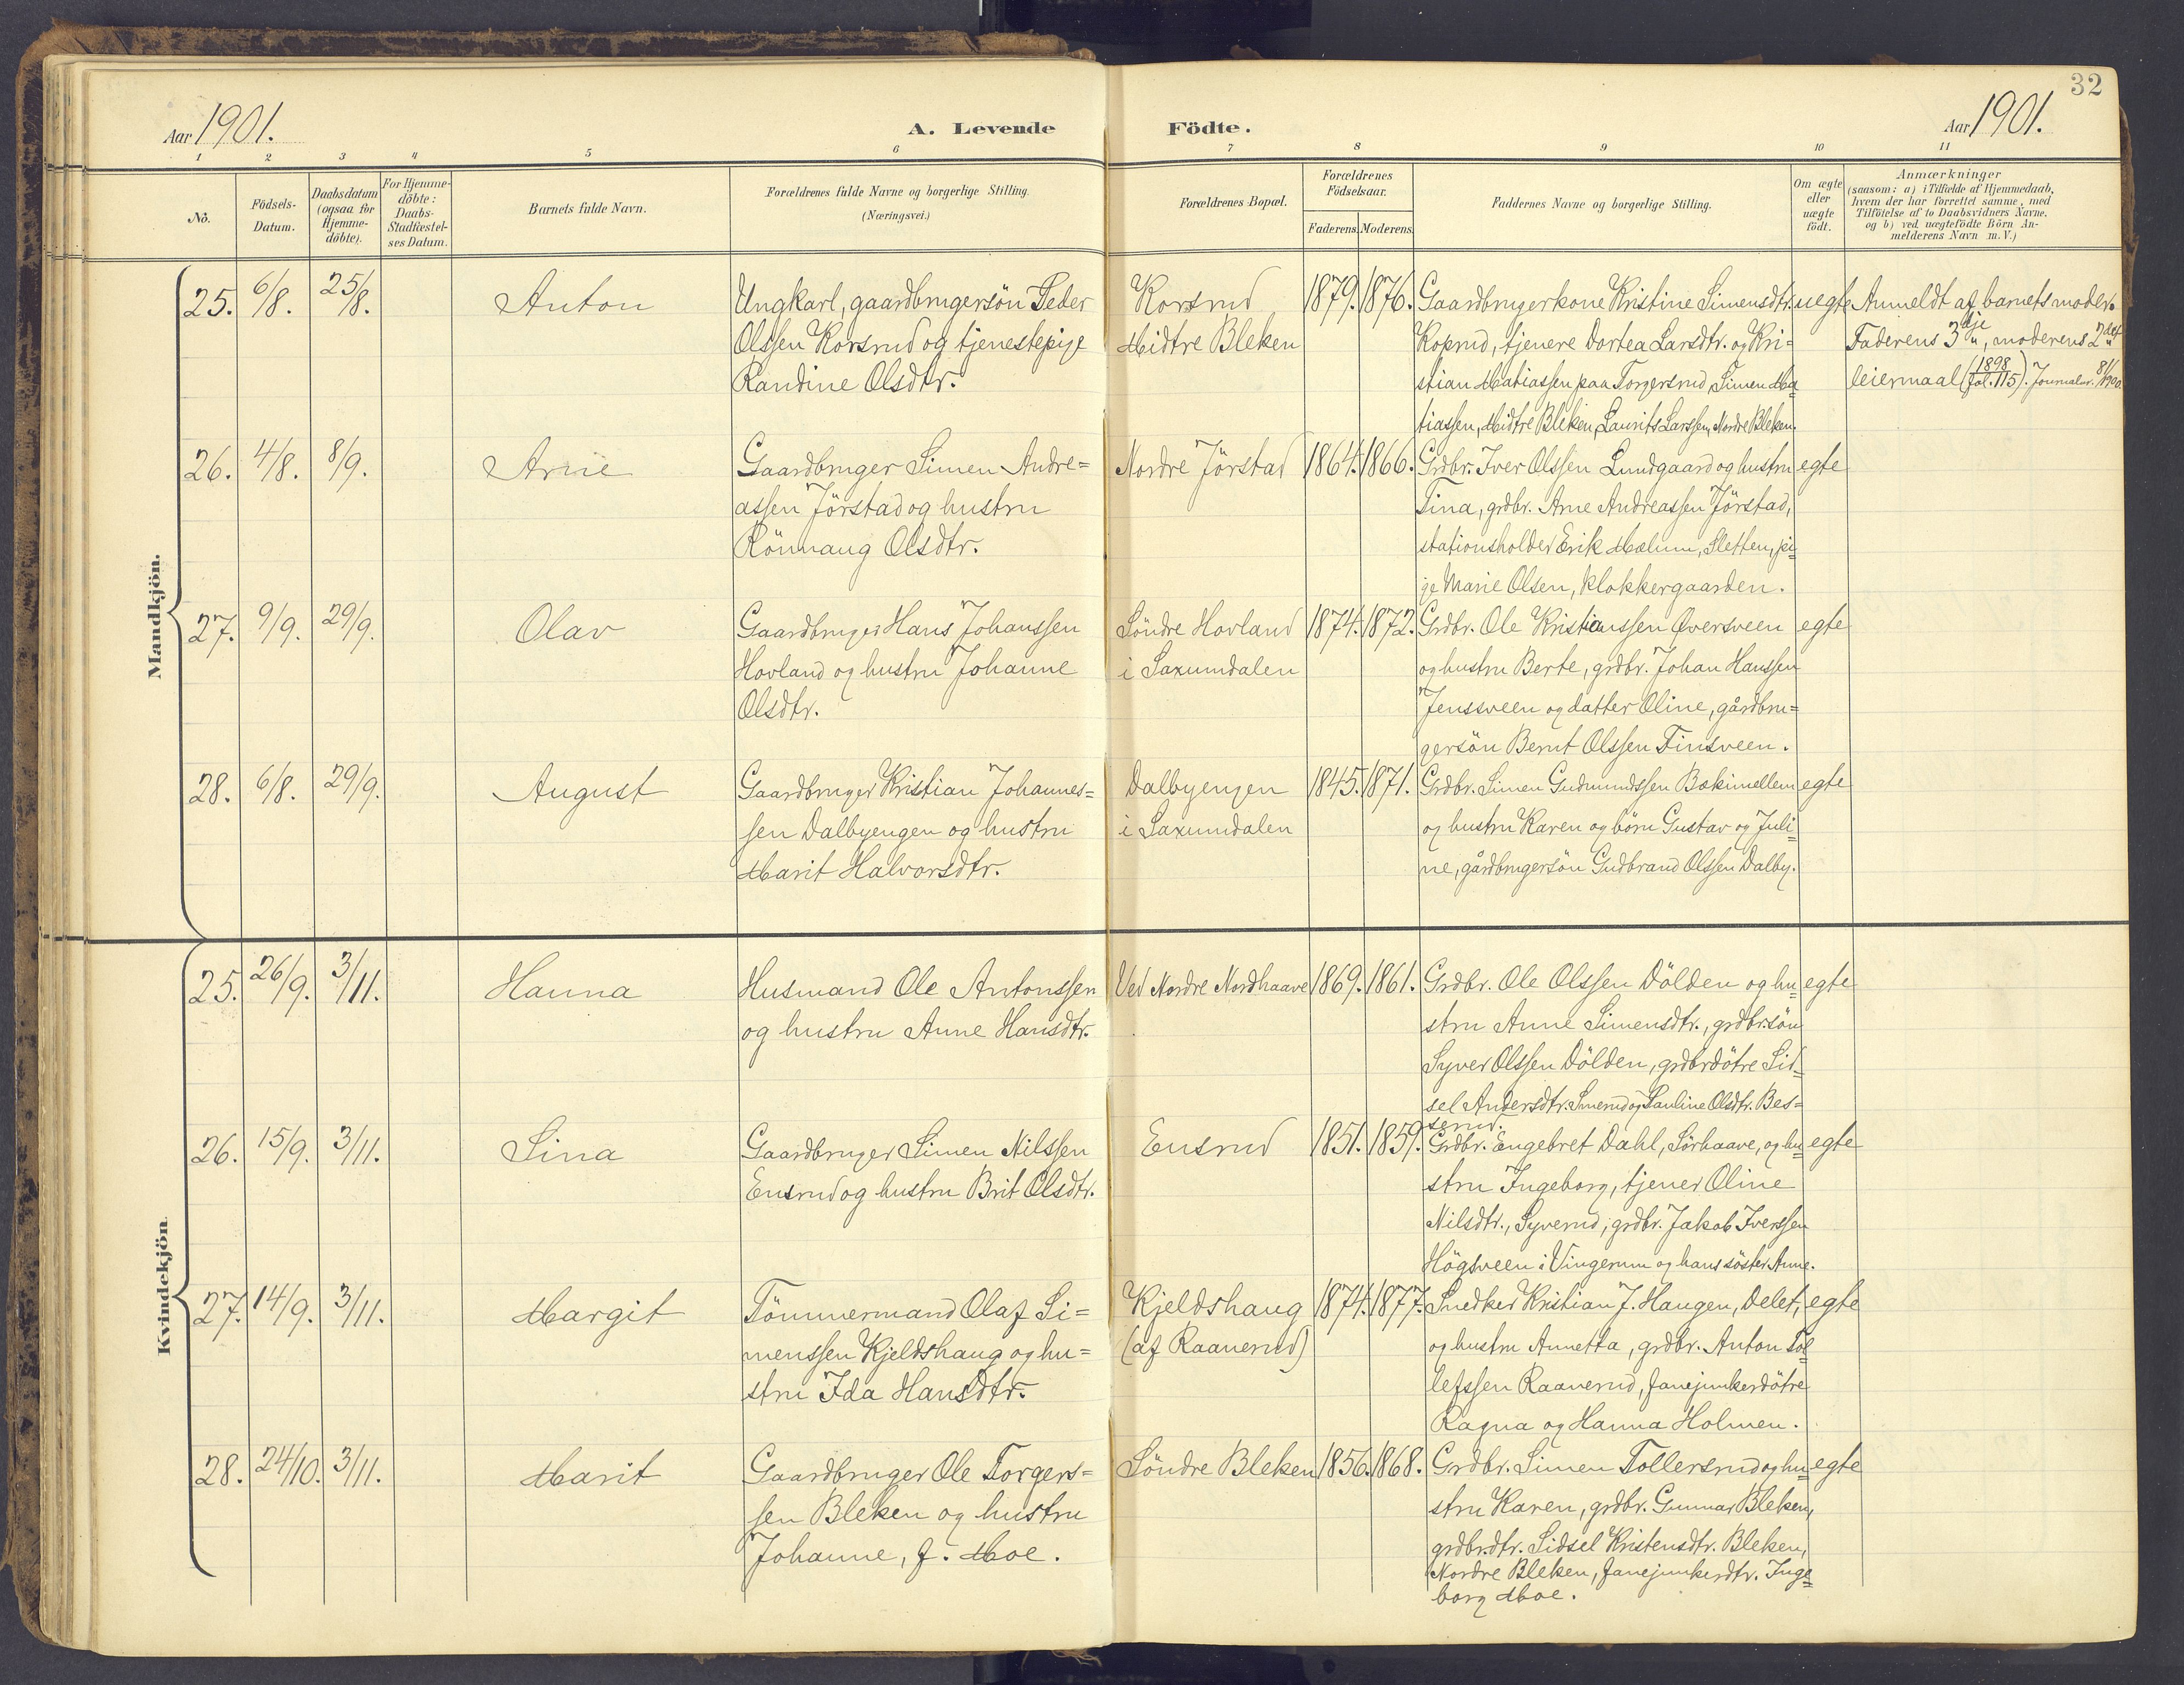 32
Aar 1901.
A. Levende Födte.
Aar 1901.
1 2 3 4 5 6 7 8 9 10 11
No.
Födsels-
Datum.
Daabsdatum
(ogsaa for
Hjemme-
döbte).
For Hjemme-
döbte:
Daabs-
Stadfæstel-
ses Datum.
Barnets fulde Navn.
Forældrenes fulde Navne og borgerlige Stilling.
(Næringsvei.)
Forældrenes Bopæl.
Forældrenes
Födselsaar.
Faderens. Moderens.
Faddernes Navne og borgerlige Stilling.
Om ægte
eller
uægte
födt.
Anmærkninger
(saasom: a) i Tilfælde af Hjemmedaab,
hvem der har forrettet samme, med
Tilföielse af to Daabsvidners Navne,
og b) ved uægtefödte Börn An-
melderens Navn m. V.)
Mandkjön.
25. 6/8. 25/8. Anton
Ungkarl, gaardbrugersön Peder
Olssen Korsrud og tjenestepige
Randine Olsdtr.
Korsrud
Midtre Bleken
1879. 1876.
Gaardbrugerkone Kristine Simensdtr.
Koprud, tjenere Dortea Larsdtr. og Kri=
stian Matiassen paa Torgersrud, Simen Ma
tiassen, Midtre Bleken, Laurits Larssen, Nordre Bleken.
uegte
Anmeldt af barnets moder.
Faderens 3dje, moderens 2det
leiermaal (1898 fol. 115). Journalnr. 81/1900.
26. 4/8. 8/9. Arne
Gaardbruger Simen Andre=
assen Jörstad og hustru
Rönnaug Olsdtr.
Nordre Jörstad
1864. 1866.
Grdbr. Iver Olssen Lundgaard og hustru
Tina, grdbr. Arne Andreassen Jörstad,
stationsholder Erik Mælum, Sletten, pi=
ge Marie Olsen, Klokkergaarden.
egte
27. 9/9. 29/9. Olav
Gaardbruger Hans Johanssen
Hovland og hustru Johanne
Olsdtr.
Söndre Hovland
i Saxumdalen
1874. 1872.
Grdbr. Ole Kristianssen Översveen
og hustru Berte, grdbr. Johan Hanssen
Jenssveen og datter Oline, gårdbru=
gersön Bernt Olssen Finsveen.
egte
28. 6/8. 29/9. August
Gaardbruger Kristian Johannes=
sen Dalbyengen og hustru
Marit Halvorsdtr.
Dalbyengen
i Saxumdalen
1845. 1871.
Grdbr. Simen Gudmundssen Bækimellem
og hustru Karen og börn Gustav og Juli=
ne, gårdbrugersön Gudbrand Olssen Dalby.
egte
Kvindekjön.
25. 26/9. 3/11. Hanna
Husmand Ole Antonssen
og hustru Anne Hansdtr.
Ved Nordre Nordhaave
1869. 1861.
Grdbr. Ole Olssen Dölden og hu=
stru Anne Simensdtr., grdbr.sön
Syver Olssen Dölden, grdbrdötre Sid=
sel Andersdtr. Smerud og Pauline Olsdtr. Bes=
serud.
egte
26. 15/9. 3/11. Sina
Gaardbruger Simen Nilssen
Ensrud og hustru Brit Olsdtr.
Ensrud
1851. 1859.
Grdbr. Engebret Dahl, Sörhaave, og hu
stru Ingeborg, tjener Oline
Nilsdtr., Syverud, grdbr. Jakob Iverssen
Högsveen i Vingerum og hans söster Anne.
egte
27. 14/9. 3/11. Margit
Tömmermand Olaf Si=
menssen Kjeldshaug og hu=
stru Ida Hansdtr.
Kjeldshaug
(af Raanerud)
1874. 1877.
Snedker Kristian J. Haugen, Delet,
og hustru Annetta, grdbr. Anton Tol
lefssen Raanerud, fanejunkerdötre
Ragna og Hanna Holmen.
egte
28. 24/10. 3/11. Marit
Gaardbruger Ole Torgers=
sen Bleken og hustru
Johanne, f. Moe.
Söndre Bleken
1856. 1868.
Grdbr. Simen Tollersrud og hu=
stru Karen, grdbr. Gunnar Bleken,
grdbr.dtr. Sidsel Kristensdtr. Bleken,
Nordre Bleken, fanejunkerdtr. Inge=
borg Moe.
egte